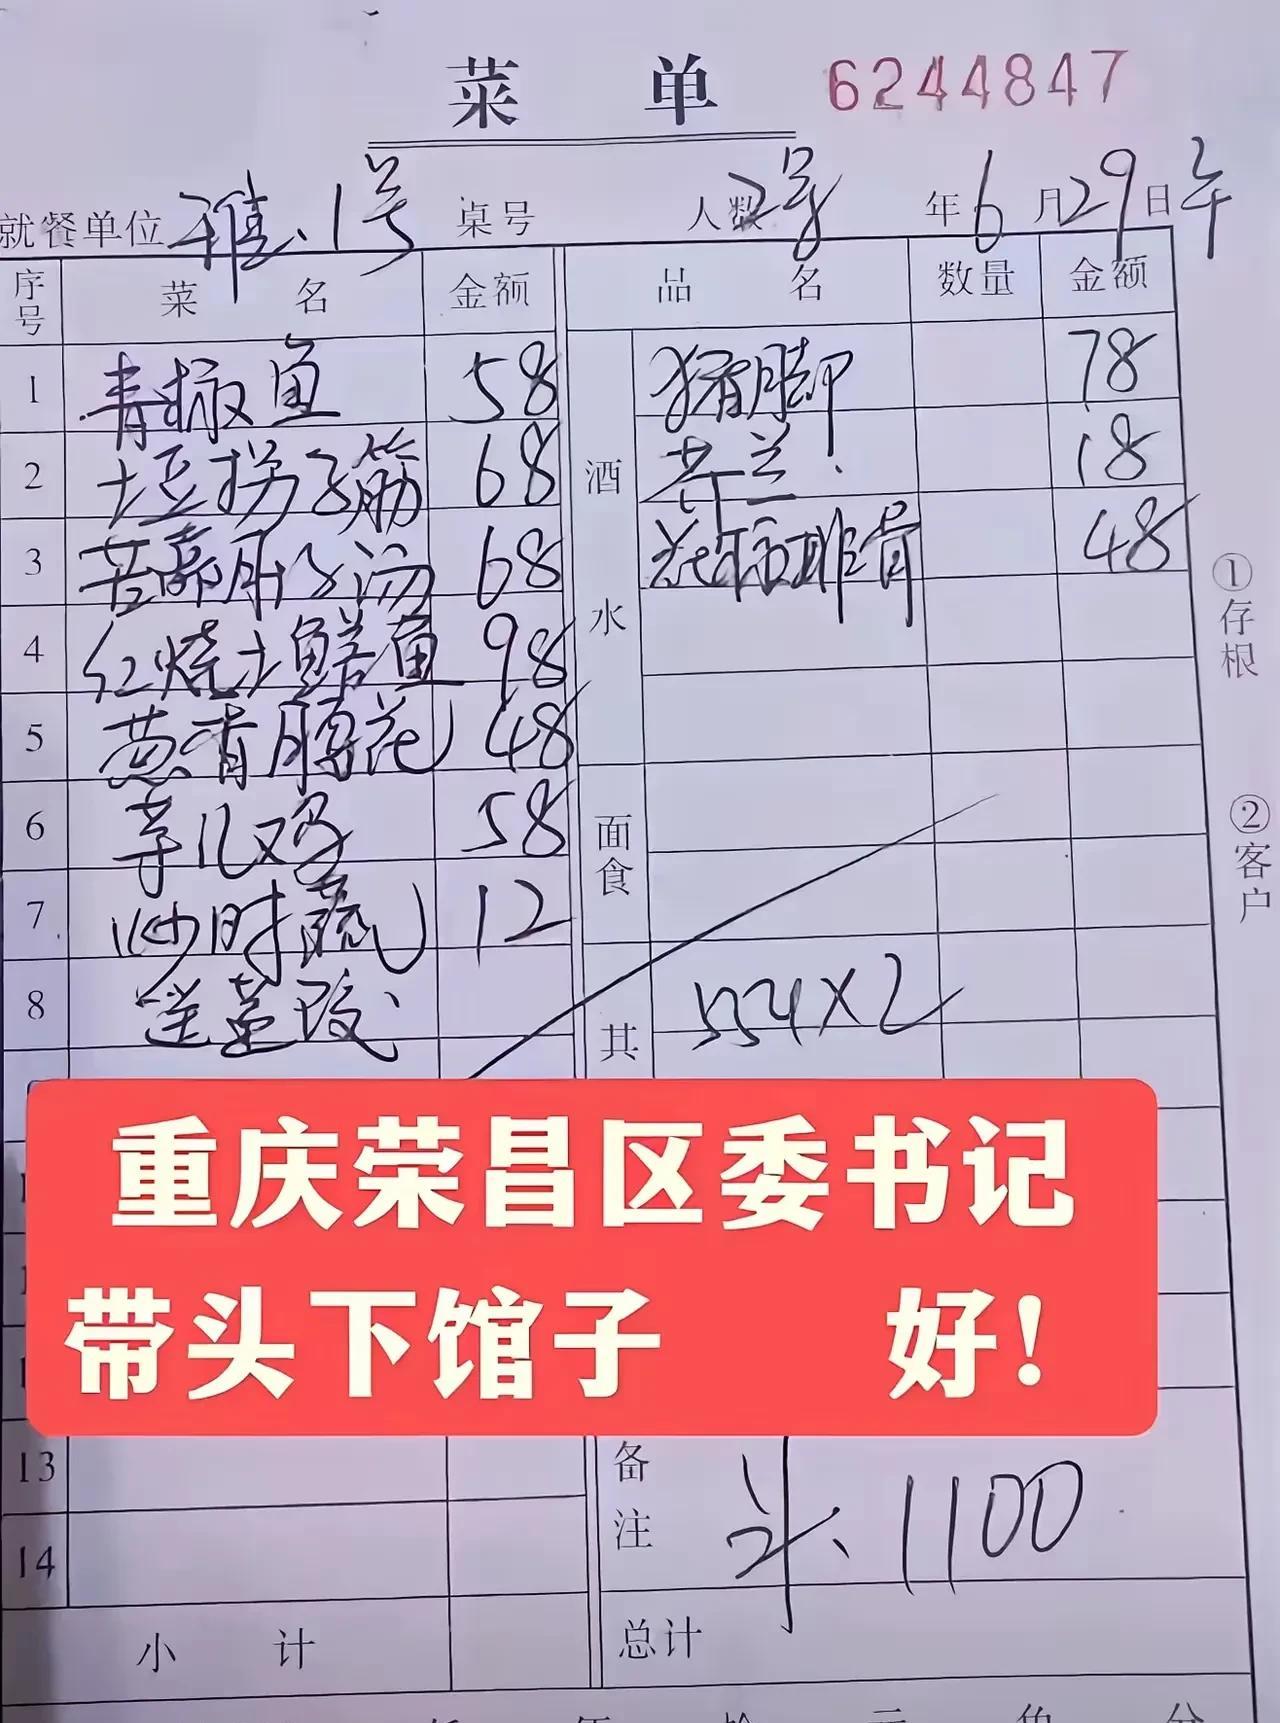 菜 单 6244847
就餐单位 雅.1号 桌号 人数 2号 年6月29日午
序号 菜 名 金额 品 名 数量 金额
1 青椒鱼 58 猪脚 78
2 土豆拐子筋 68 芥兰 18
3 68 排骨 48
4 红烧土鳝鱼 98
5 葱香腰花 48
6 芋儿鸡 58
7 炒时蔬 12
8
酒水
面食
其 554×2
①存根
②客户
重庆荣昌区委书记
带头下馆子 好!
13
14
备注 1100
小 计 总计